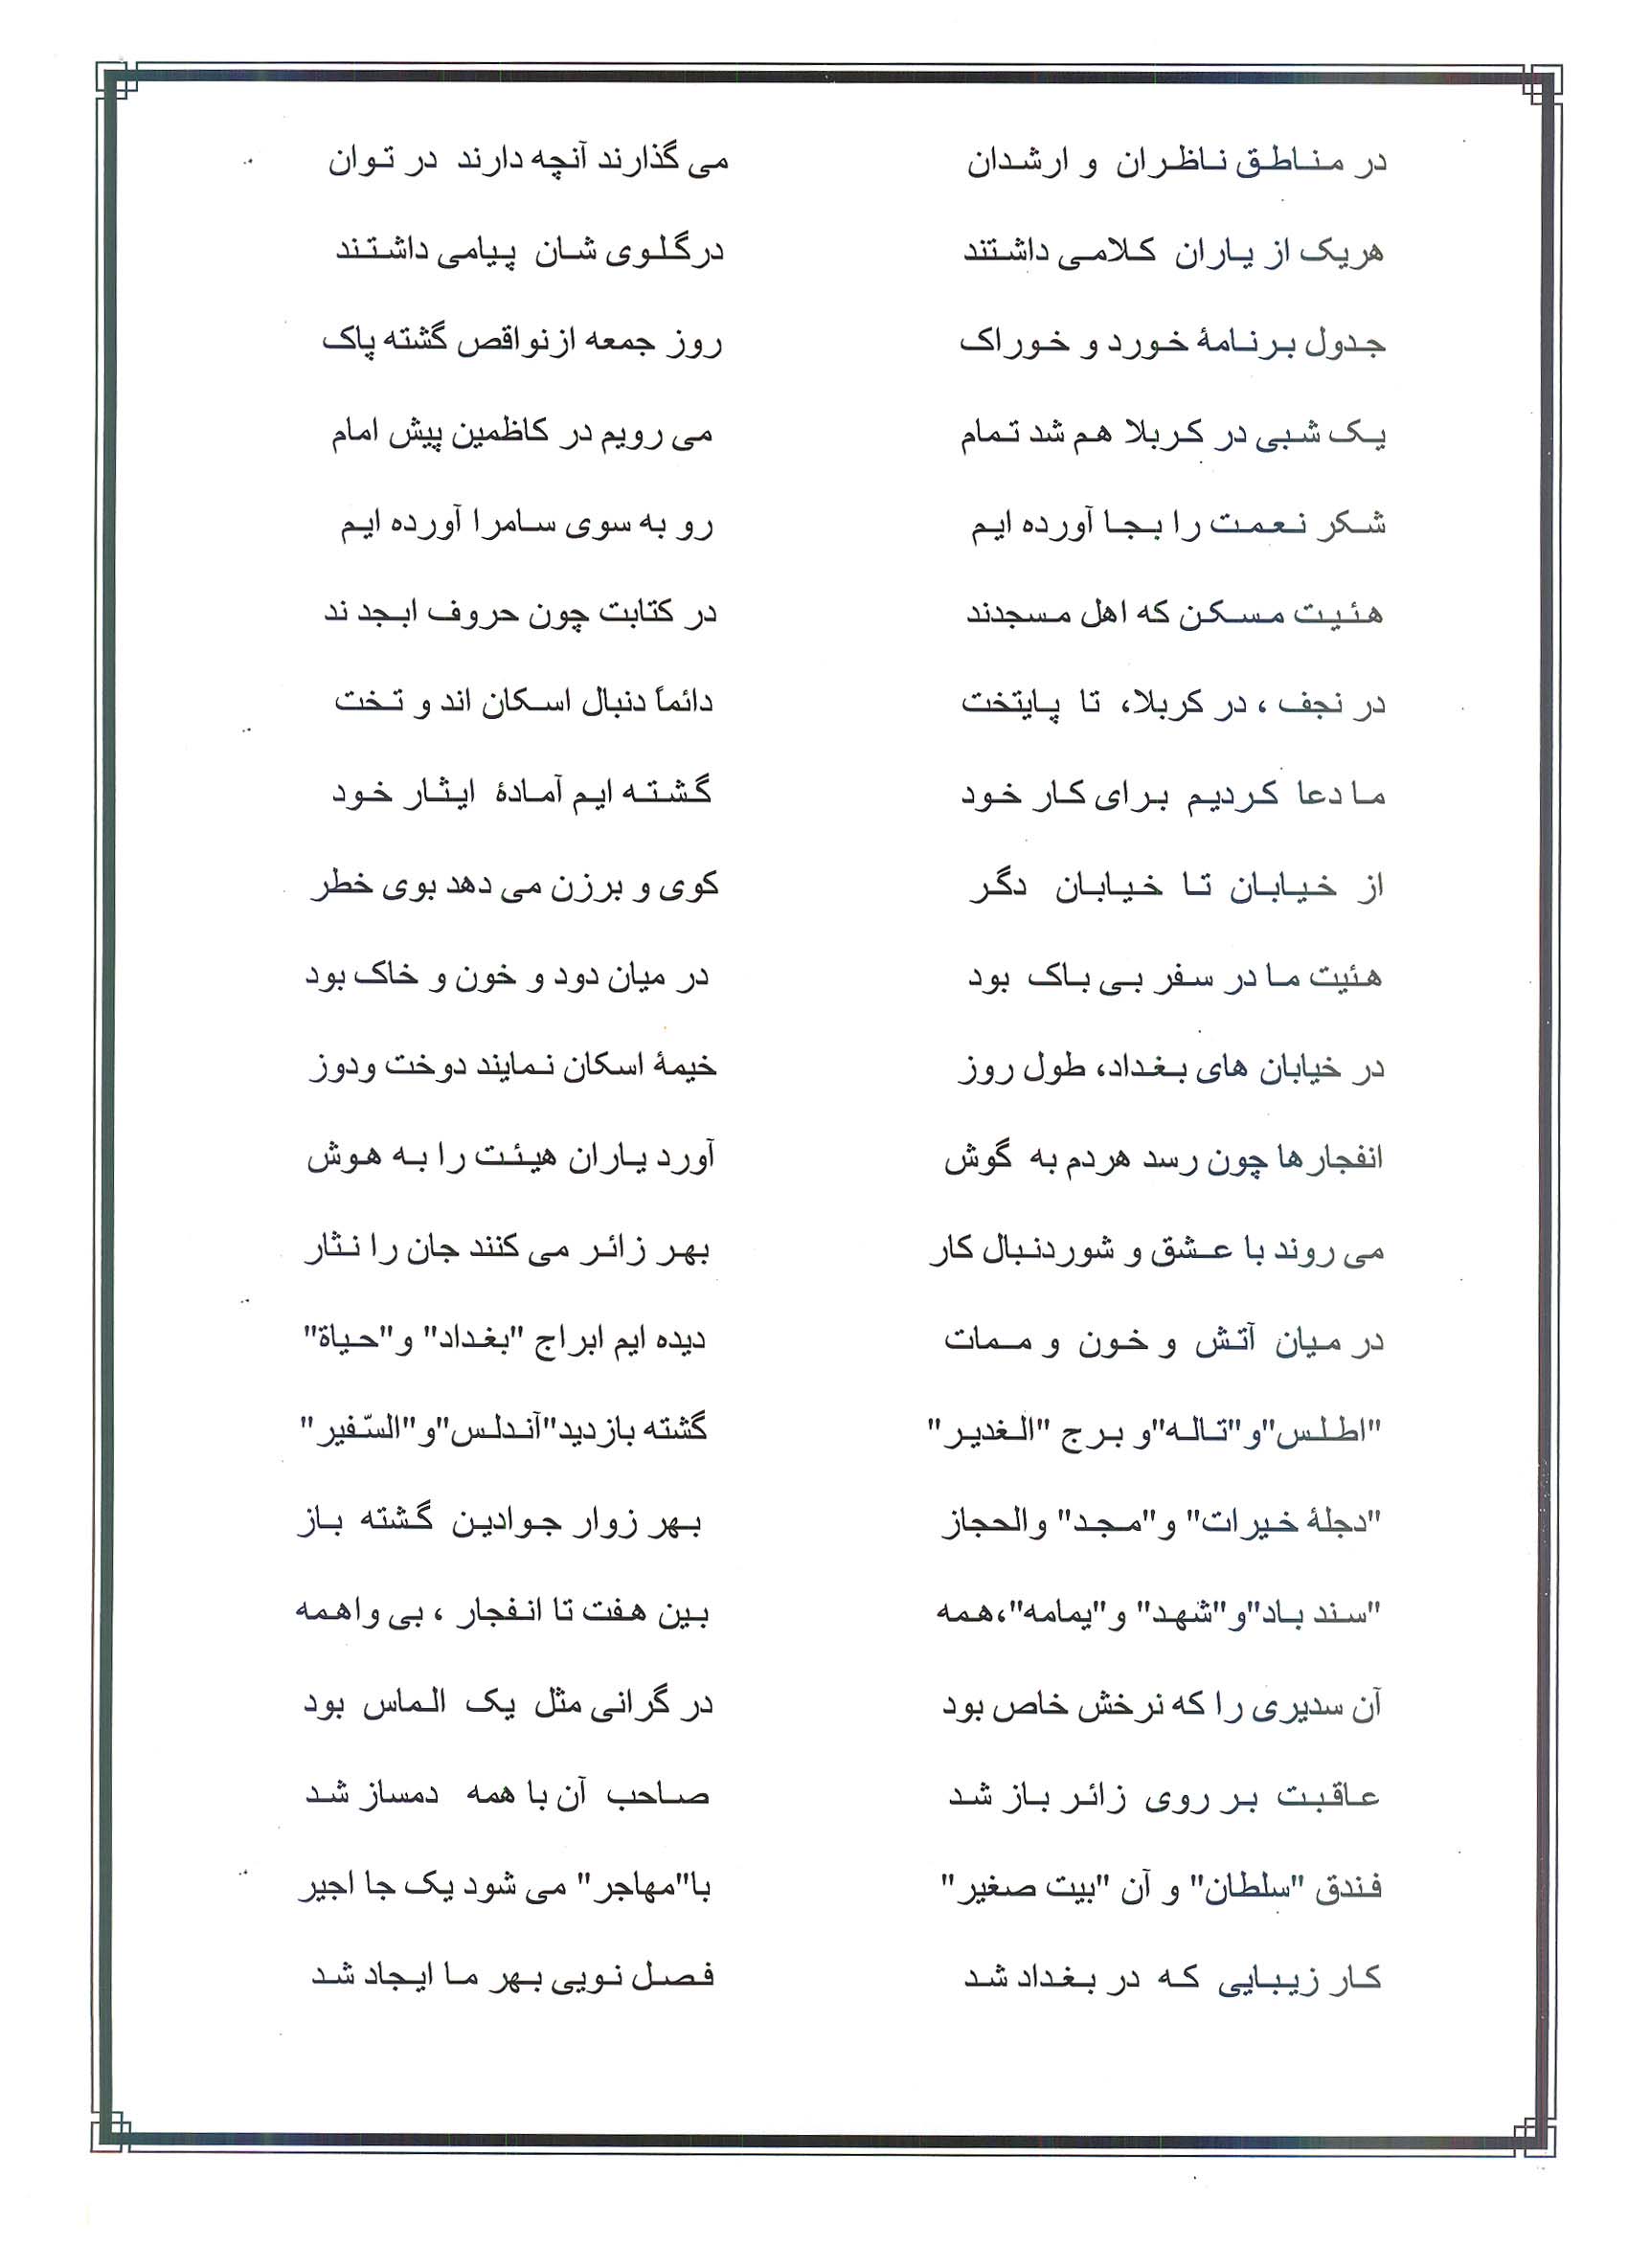 در مناطق ناظران و ارشدان می گذارند آنچه دارند در توان
هریک از یاران کلامی داشتند درگلوی شان پیامی داشتند
جدول برنامۀ خورد و خوراک روز جمعه ازنواقص گشته پاک
یک شبی در کربلا هم شد تمام می رویم در کاظمین پیش امام
شکر نعمت را بجا آورده ایم رو به سوی سامرا آورده ایم
هئیت مسکن که اهل مسجدند در کتابت چون حروف ابجد ند
در نجف ، در کربلا، تا پایتخت دائماً دنبال اسکان اند و تخت
ما دعا کردیم برای کار خود گشته ایم آمادۀ ایثار خود
از خیابان تا خیابان دگر کوی و برزن می دهد بوی خطر
هئیت ما در سفر بی باک بود در میان دود و خون و خاک بود
در خیابان های بغداد، طول روز خیمۀ اسکان نمایند دوخت ودوز
انفجارها چون رسد هردم به گوش آورد یاران هیئت را به هوش
می روند با عشق و شوردنبال کار بهر زائر می کنند جان را نثار
در میان آتش و خون و ممات دیده ایم ابراج "بغداد" و"حیاة"
"اطلس"و"تاله"و برج "الغدیر" گشته بازدید"آندلس"و"السّفیر"
"دجلۀ خیرات" و"مجد" والحجاز بهر زوار جوادین گشته باز
"سند باد"و"شهد" و"یمامه"،همه بین هفت تا انفجار ، بی واهمه
آن سدیری را که نرخش خاص بود در گرانی مثل یک الماس بود
عاقبت بر روی زائر باز شد صاحب آن با همه دمساز شد
فندق "سلطان" و آن "بیت صغیر" با"مهاجر" می شود یک جا اجیر
کار زیبایی که در بغداد شد فصل نویی بهر ما ایجاد شد